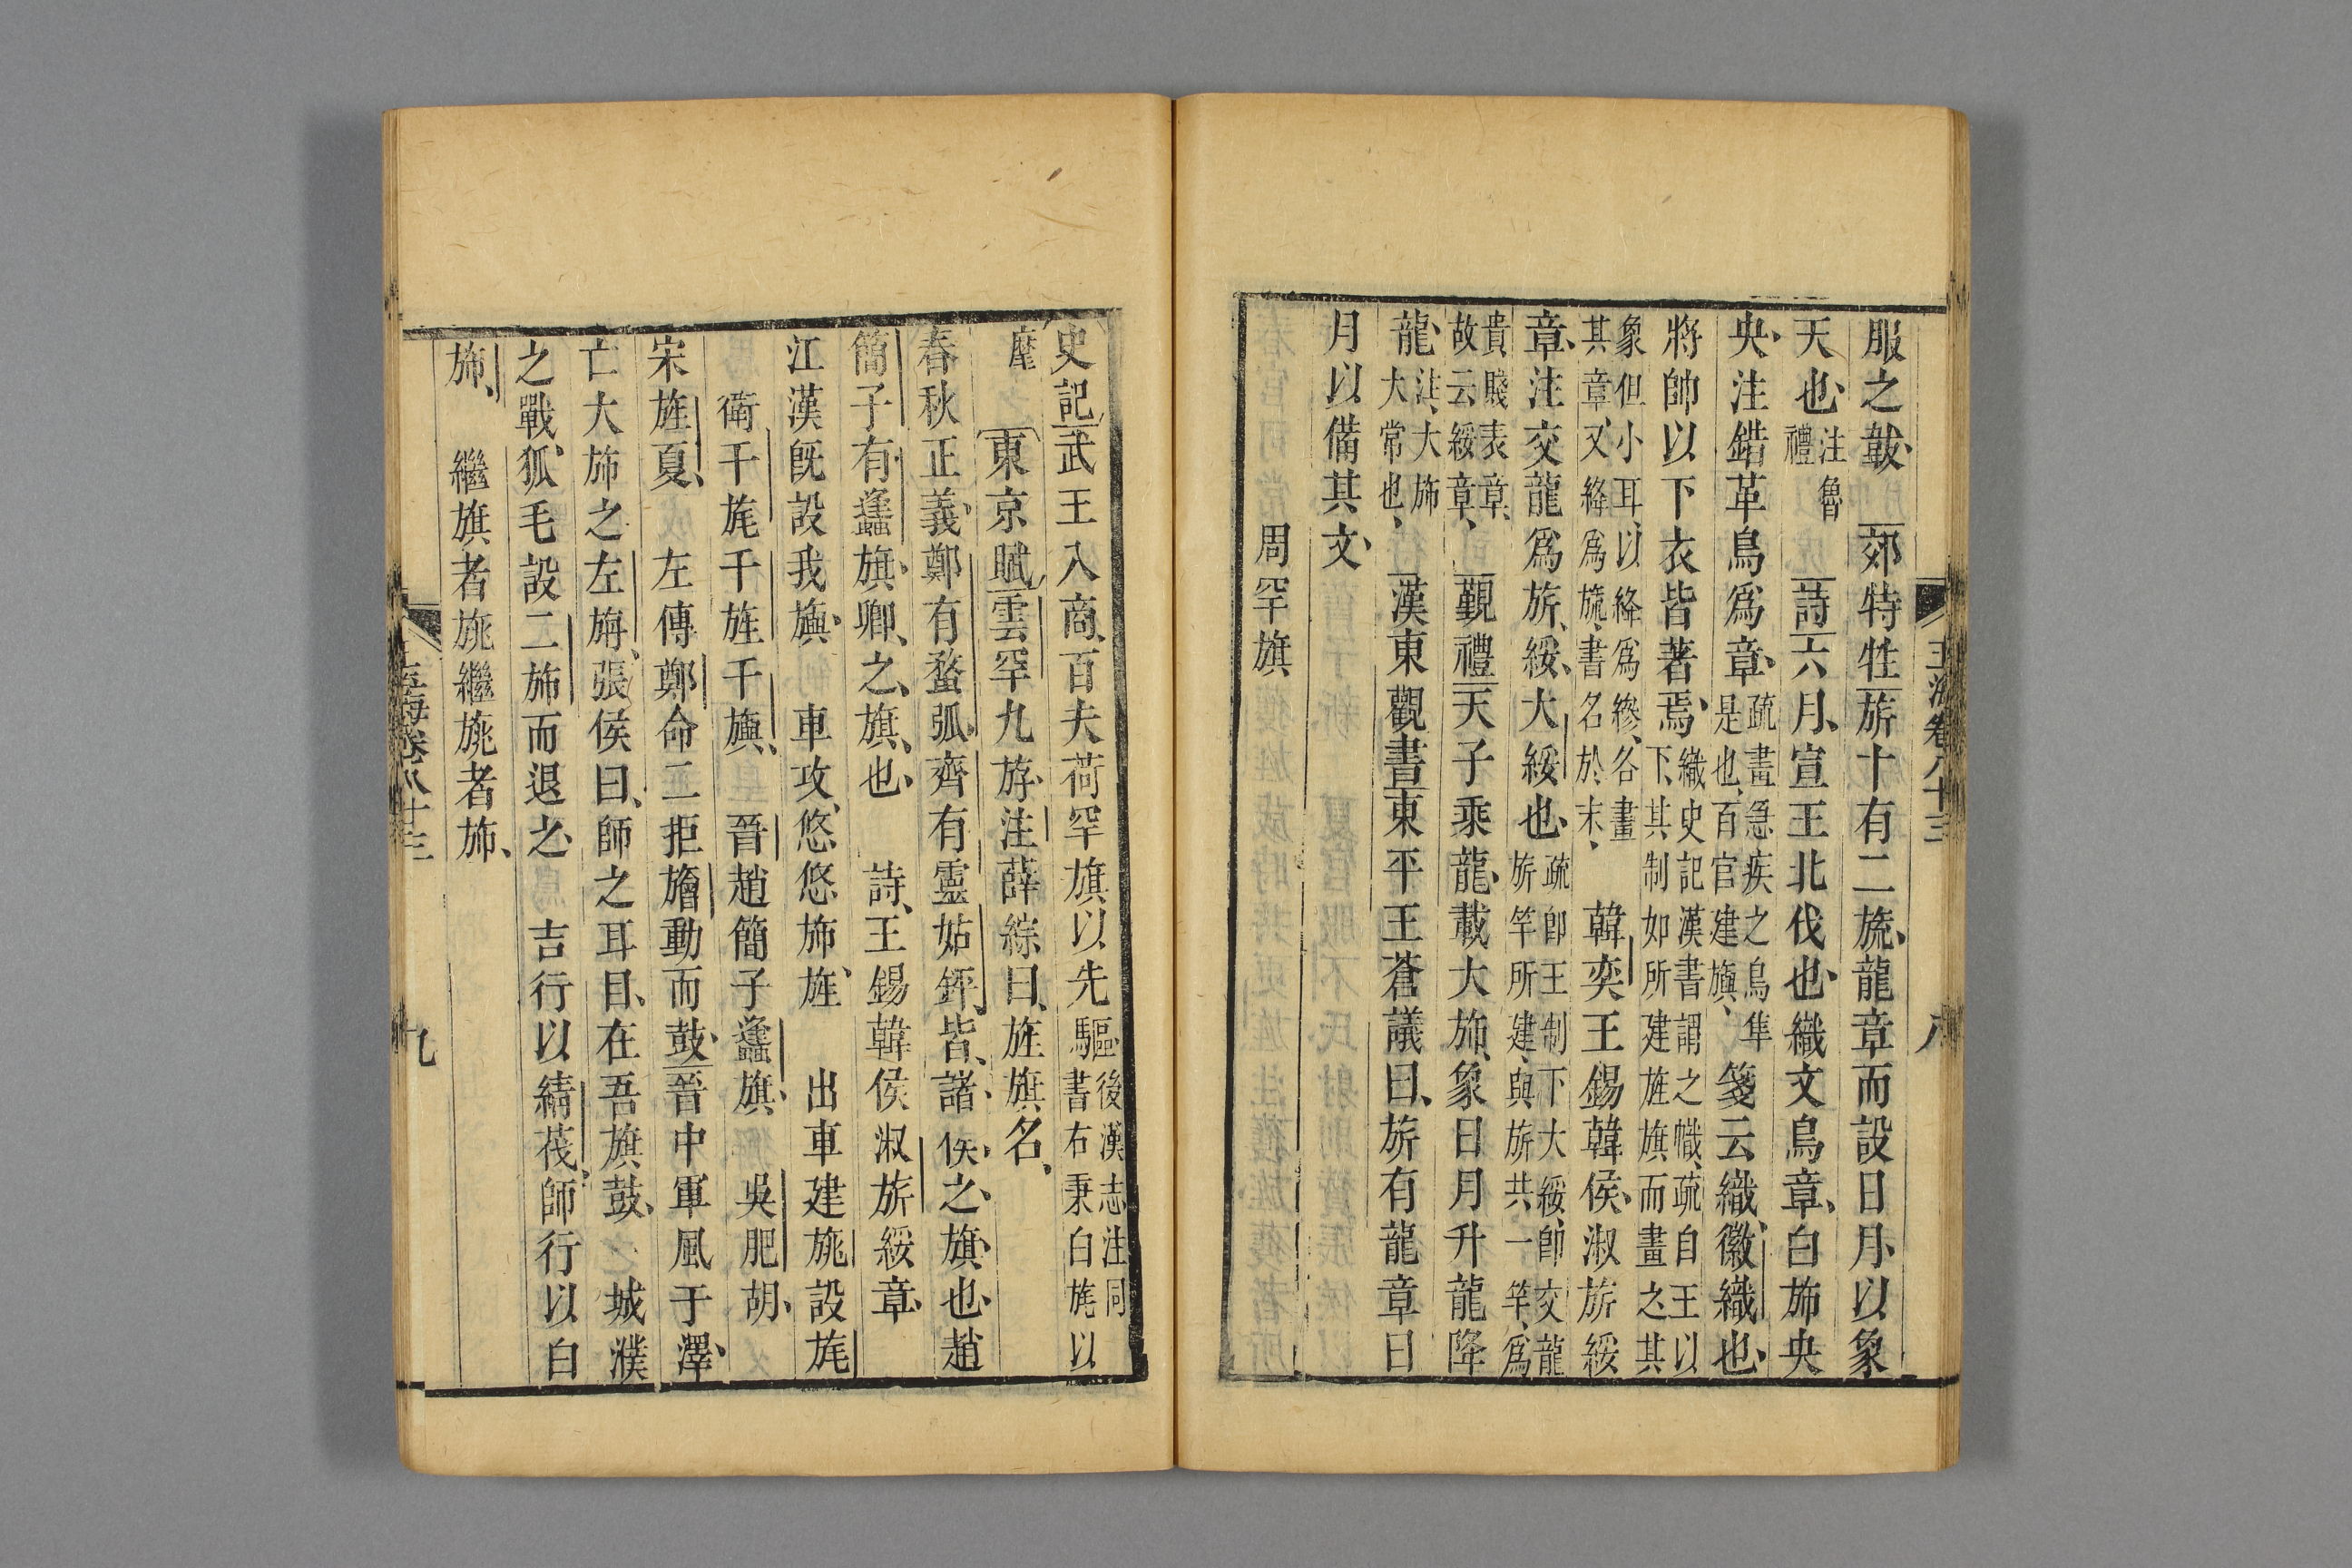 玉海卷八十三 八
服之韍 郊特牲旂十有二旒龍章而設日月以象
天也注魯禮 詩六月宣王北伐也織文鳥章白斾央
央注錯革鳥爲章疏畫急疾之鳥隼是也百官建旟箋云織徽織也
將帥以下衣皆著焉織史記漢書謂之幟疏自王以下其制如所建旌旗而畫之其
象但小耳以絳爲縿各畫其章又絳爲旒書名於末 韓奕王錫韓侯淑旂綏
章注交龍爲旂綏大綏也疏卽王制下大綏卽交龍旂竿所建與旂共一竿爲
貴賤表章故云綏章 覲禮天子乘龍載大斾象日月升龍降
龍注大斾大常也 漢東觀書東平王蒼議曰旂有龍章日
月以備其文
周罕旗
史記武王入商百夫荷罕旗以先驅後漢志注同書右秉白旄以
麾 東京賦雲罕九斿注薛綜曰旌旗名
春秋正義鄭有蝥弧齊有靈姑鉟皆諸侯之旗也趙
簡子有蠭旗卿之旗也 詩王錫韓侯淑旂綏章
江漢旣設我旟 車攻悠悠斾旌 出車建旐設旄
衛干旄干旌干旟 晉趙簡子蠭旗 吳肥胡
宋旌夏 左傳鄭命二拒旝動而鼓晉中軍風于澤
亡大斾之左旃張侯曰師之耳目在吾旗鼓 城濮
之戰狐毛設二斾而退之 吉行以綪茷師行以白
斾 繼旗者旐繼旐者斾
玉海卷八十三 九